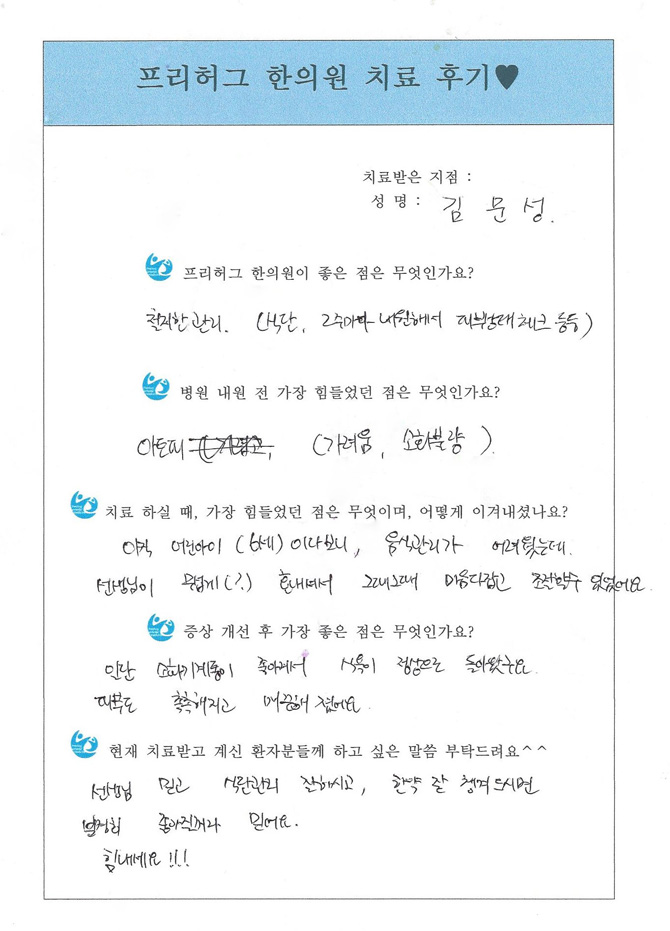 프리허그 한의원 치료 후기♥
치료받은 지점 :
성 명 : 김 문 성.
프리허그 한의원이 좋은 점은 무엇인가요?
철저한 관리. (식단, 2주마다 내원해서 피부상태 체크 등등)
병원 내원 전 가장 힘들었던 점은 무엇인가요?
아토피 (가려움, 소화불량).
치료 하실 때, 가장 힘들었던 점은 무엇이며, 어떻게 이겨내셨나요?
아직 어린아이 (6세) 이다보니, 음식관리가 어려웠는데.
선생님이 무섭게(?) 혼내셔서 그때그때 마음다잡고 조절할수 있었어요.
증상 개선 후 가장 좋은 점은 무엇인가요?
일단 소화기계통이 좋아져서 식욕이 정상으로 돌아왔구요
피부도 촉촉해지고 매끈해 졌어요.
현재 치료받고 계신 환자분들께 하고 싶은 말씀 부탁드려요^^
선생님 믿고 식단관리 잘하시고, 한약 잘 챙겨드시면
좋아질꺼라 믿어요.
힘내세요!!!